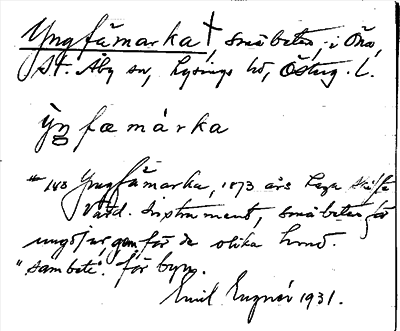 Yngfämarka†, småbeten, i Öna,
St. Åby sn, Lysings hd, Östg. L.
yngfæmárka
# 183 Yngfämarka, 1873 års Laga skifte
Värd. Instrument, småbeten för
ungdjur, gem för de olika hemd.
"sambete" för byn.
Emil 1931.